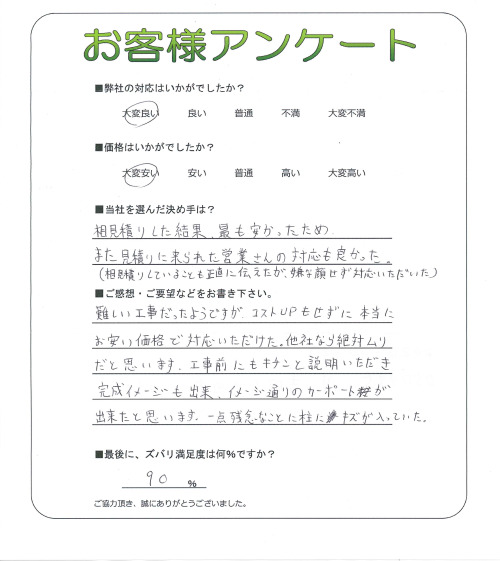 お客様アンケート
■弊社の対応はいかがでしたか？
大変良い 良い 普通 不満 大変不満
■価格はいかがでしたか？
大変安い 安い 普通 高い 大変高い
■当社を選んだ決め手は？
相見積りした結果、最も安かったため
また見積りに来られた営業さんの対応も良かった。
(相見積りしていることも正直に伝えたが、嫌な顔せず対応いただいた)
■ご感想・ご要望などをお書き下さい。
難しい工事だったようですが、コストUPもせずに本当に
お安い価格で対応いただけた。他社なら絶対ムリ
だと思います、工事前にもキチンと説明いただき
完成イメージも出来、イメージ通りのカーポートが
出来たと思います、一点残念なことに柱にキズが入っていた。
■最後に、ズバリ満足度は何%ですか？
90 %
ご協力頂き、誠にありがとうございました。